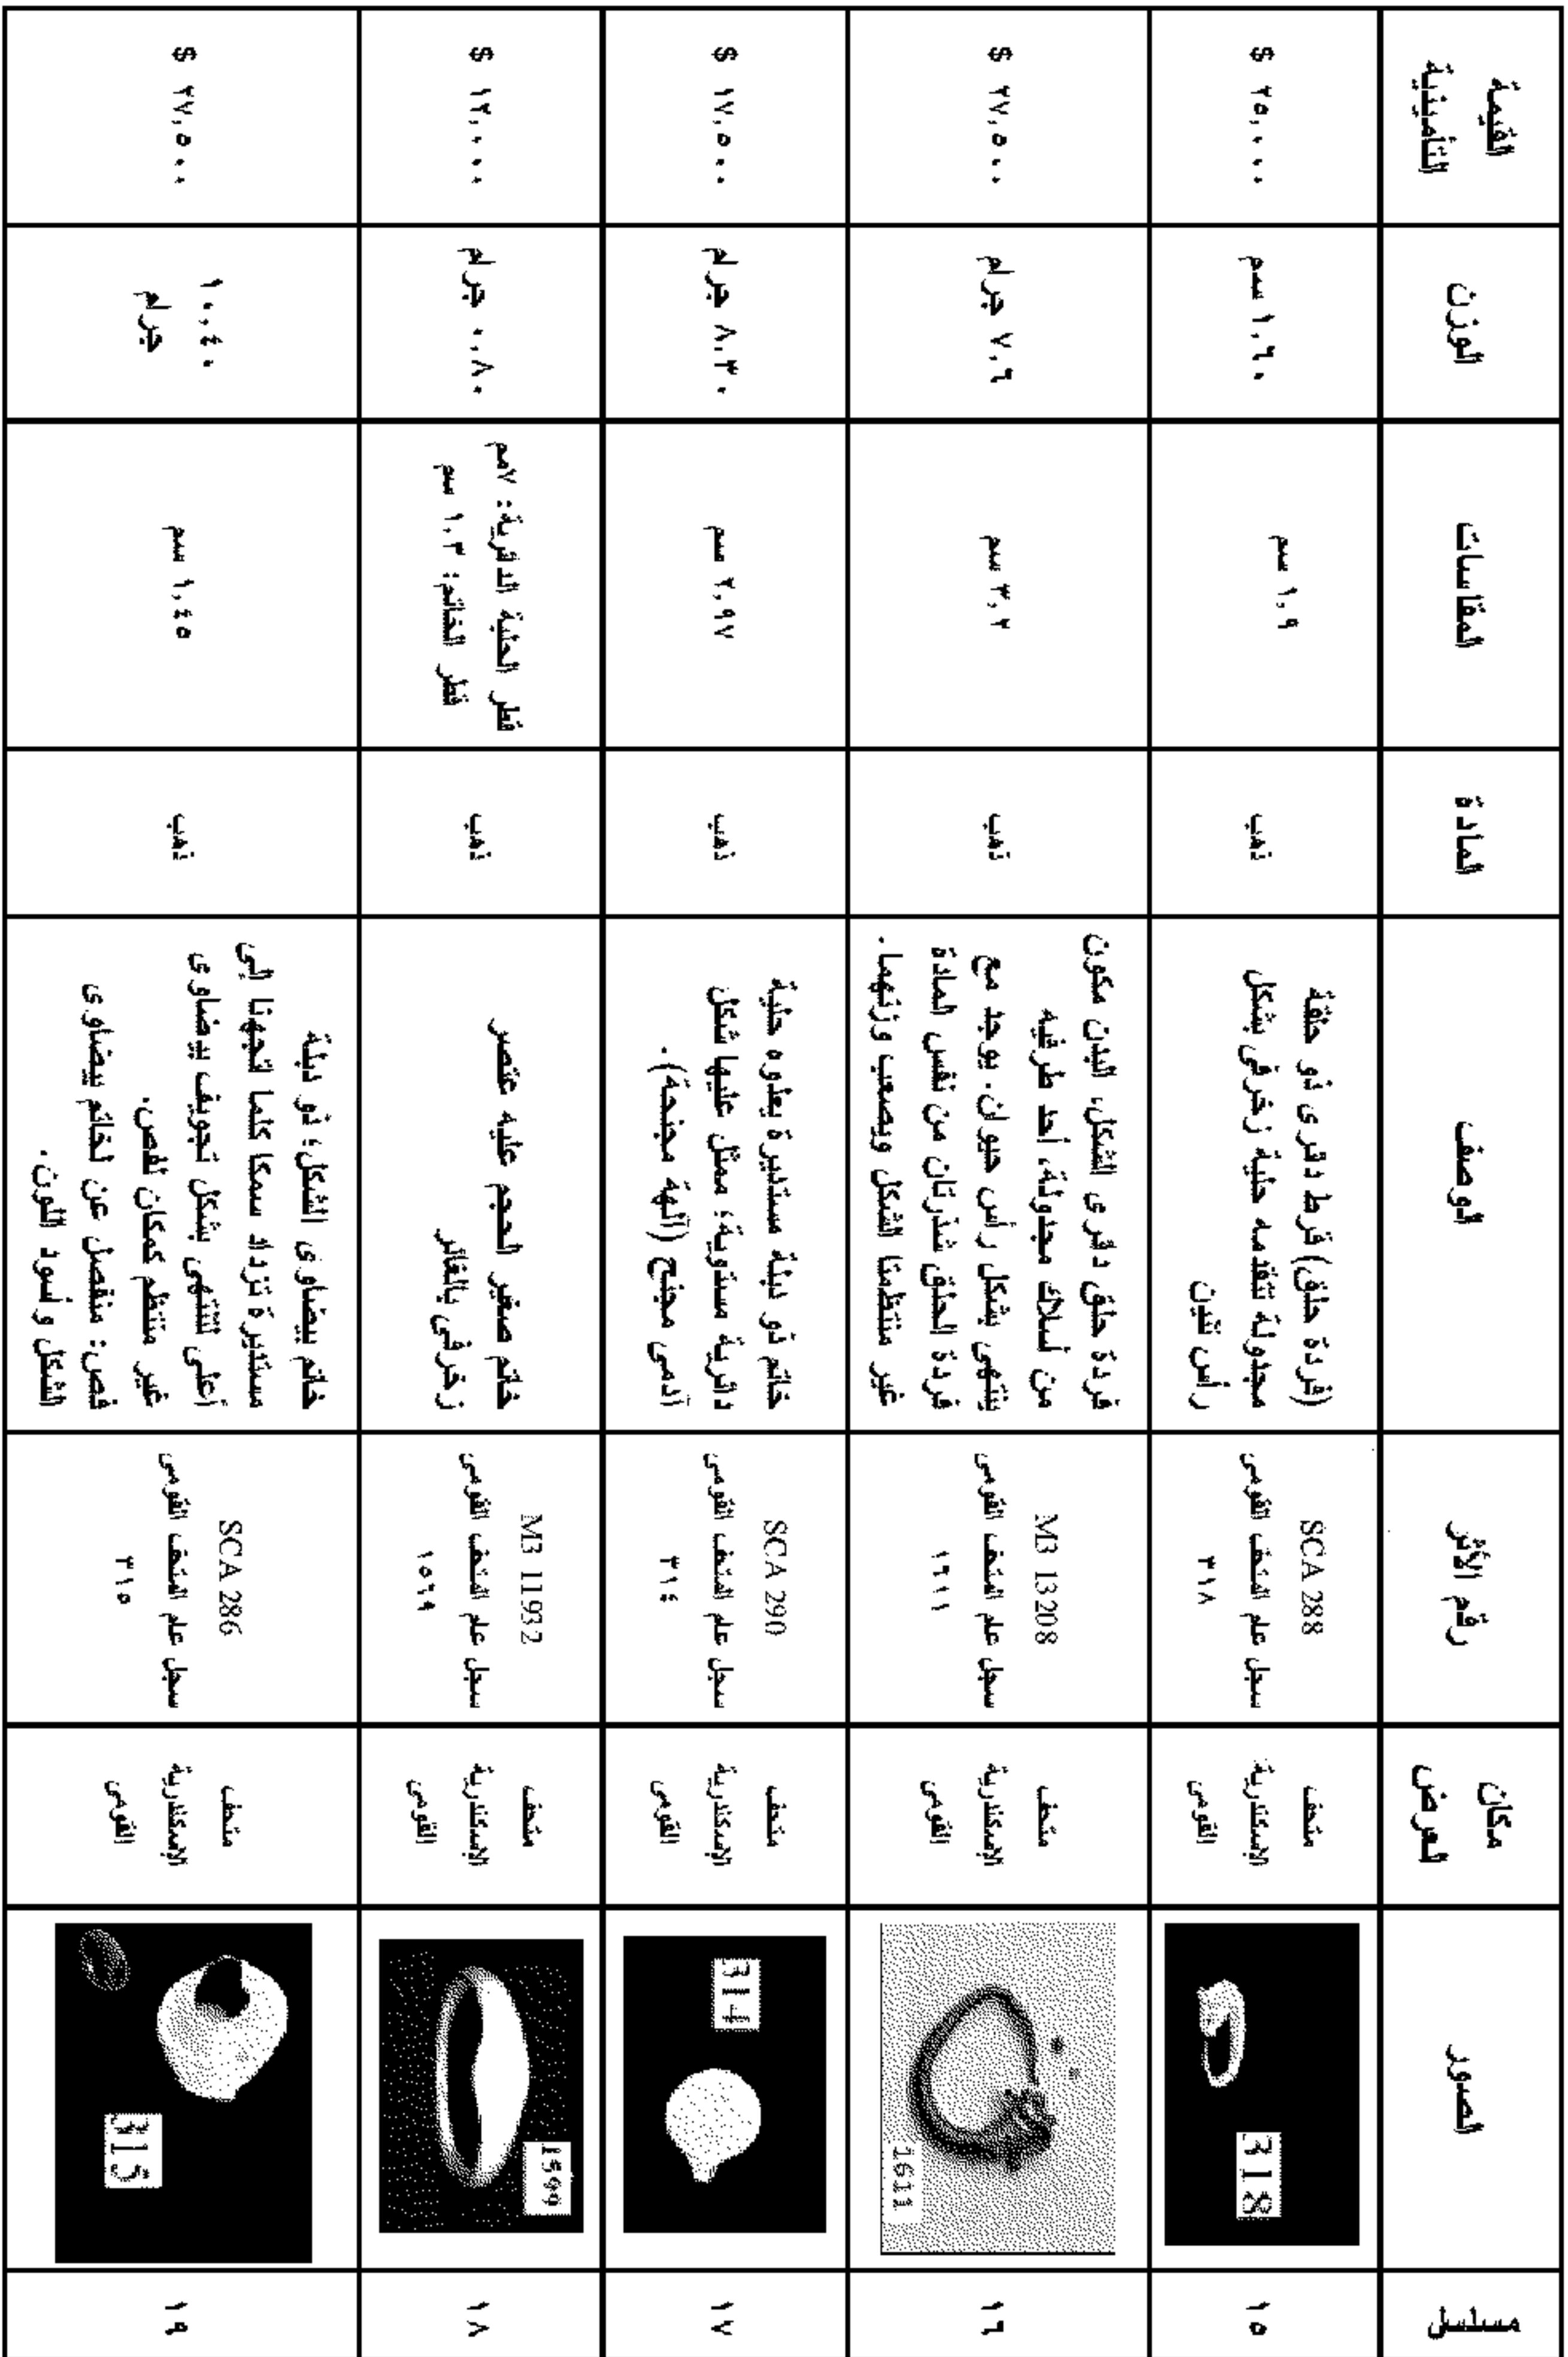 مسلسل
الصور
مكان
العرض
رقم الأثر
الوصف
المادة
المقاسات
الوزن
القيمة
التأمينية
١٥
318
متحف
الإسكندرية
القومى
SCA 288
سجل عام المتحف القومى
٣١٨
(فردة حلق) قرط دائرى ذو حلقة
مجدولة تتقدمه حلية زخرفى بشكل
رأس تنين
ذهب
١,٩ سم
١,٦٠ سم
٢٥,٠٠٠ $
١٦
1611
متحف
الإسكندرية
القومى
M3 13208
سجل عام المتحف القومى
١٦١١
فردة حلق دائرى الشكل، البدن مكون
من أسلاك مجدولة، أحد طرفيه
ينتهى بشكل رأس حيوان. يوجد مع
فردة الحلق شذرتان من نفس المادة
غير منتظمتا الشكل ويصعب وزنهما.
ذهب
٣,٢ سم
٧,٦ جرام
٢٧,٥٠٠ $
١٧
314
متحف
الإسكندرية
القومى
SCA 290
سجل عام المتحف القومى
٣١٤
خاتم ذو دبلة مستديرة يعلوه حلية
دائرية مستوية؛ ممثل عليها شكل
آدمى مجنح (آلهة مجنحة).
ذهب
٢,٩٧ سم
٨.٣٠ جرام
١٧,٥٠٠ $
١٨
1599
متحف
الإسكندرية
القومى
M3 11932
سجل عام المتحف القومى
١٥٦٩
خاتم صغير الحجم عليه عنصر
زخرفى بالغائر
ذهب
قطر الحلية الدائرية: ٧مم
قطر الخاتم: ١,٣ سم
٠,٨٠ جرام
١٢,٠٠٠ $
١٩
315
متحف
الإسكندرية
القومى
SCA 286
سجل عام المتحف القومى
٣١٥
خاتم بيضاوى الشكل؛ ذو دبلة
مستديرة تزداد سمكا كلما اتجهنا إلى
أعلى لتنتهى بشكل تجويف بيضاوى
غير منتظم كمكان لفص.
فص: منفصل عن الخاتم بيضاوى
الشكل وأسود اللون.
ذهب
١,٤٥ سم
١٠,٤٠
جرام
٢٧,٥٠٠ $